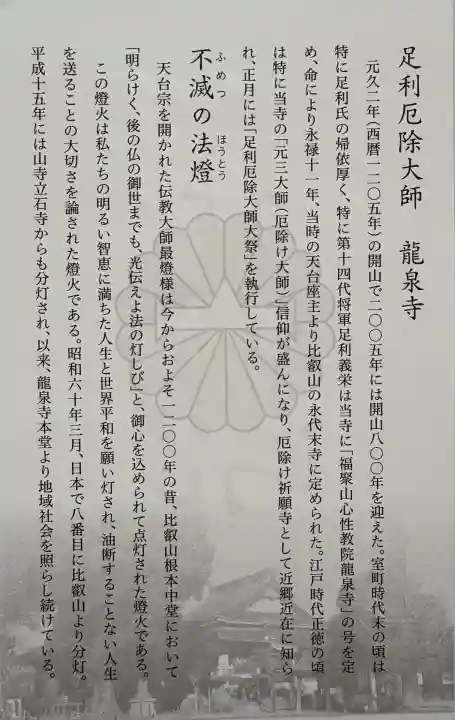 足利厄除大師　龍泉寺
元久二年（西暦一二〇五年）の開山で二〇〇五年には開山八〇〇年を迎えた。室町時代末の頃は
特に足利氏の帰依厚く、特に第十四代将軍足利義栄は当寺に「福聚山心性教院龍泉寺」の号を定
め、命により永禄十一年、当時の天台座主より比叡山の永代末寺に定められた。江戸時代正徳の頃
は特に当寺の「元三大師（厄除け大師）」信仰が盛んになり、厄除け祈願寺として近郷近在に知ら
れ、正月には「足利厄除大師大祭」を執行している。
不滅の法燈
ふめつ ほうとう
天台宗を開かれた伝教大師最澄様は今からおよそ一二〇〇年の昔、比叡山根本中堂において
「明らけく、後の仏の御世までも、光伝えよ法の灯しび」と、御心を込められて点灯された燈火である。
この燈火は私たちの明るい智恵に満ちた人生と世界平和を願い灯され、油断することない人生
を送ることの大切さを諭された燈火である。昭和六十年三月、日本で八番目に比叡山より分灯。
平成十五年には山寺立石寺からも分灯され、以来、龍泉寺本堂より地域社会を照らし続けている。